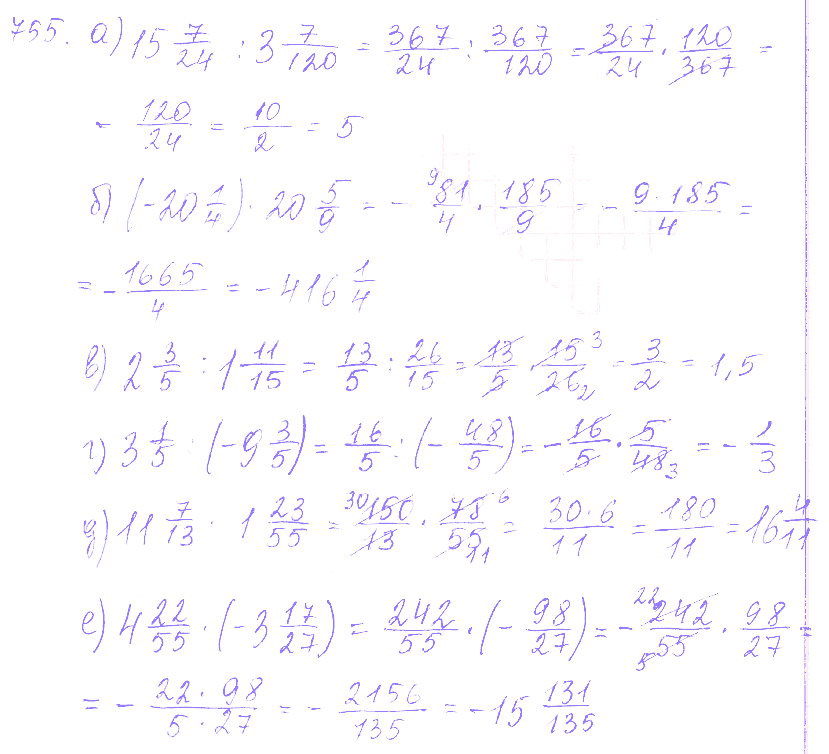 755. а) 15 7/24 : 3 7/120 = 367/24 : 367/120 = 367/24 · 120/367 =
- 120/24 = 10/2 = 5
б) (-20 1/4) · 20 5/9 = - 9 81/4 · 185/9 = - 9·185/4 =
= - 1665/4 = -416 1/4
в) 2 3/5 : 1 11/15 = 13/5 : 26/15 = 13/5 · 15 3/26 2 = 3/2 = 1,5
г) 3 1/5 : (-9 3/5) = 16/5 : (- 48/5) = - 16/5 · 5/48 3 = - 1/3
д) 11 7/13 · 1 23/55 = 30 150/13 · 78 6/55 11 = 30·6/11 = 180/11 = 16 4/11
е) 4 22/55 · (-3 17/27) = 242/55 · (- 98/27) = - 22 242/5 55 · 98/27 =
= - 22·98/5·27 = - 2156/135 = -15 131/135